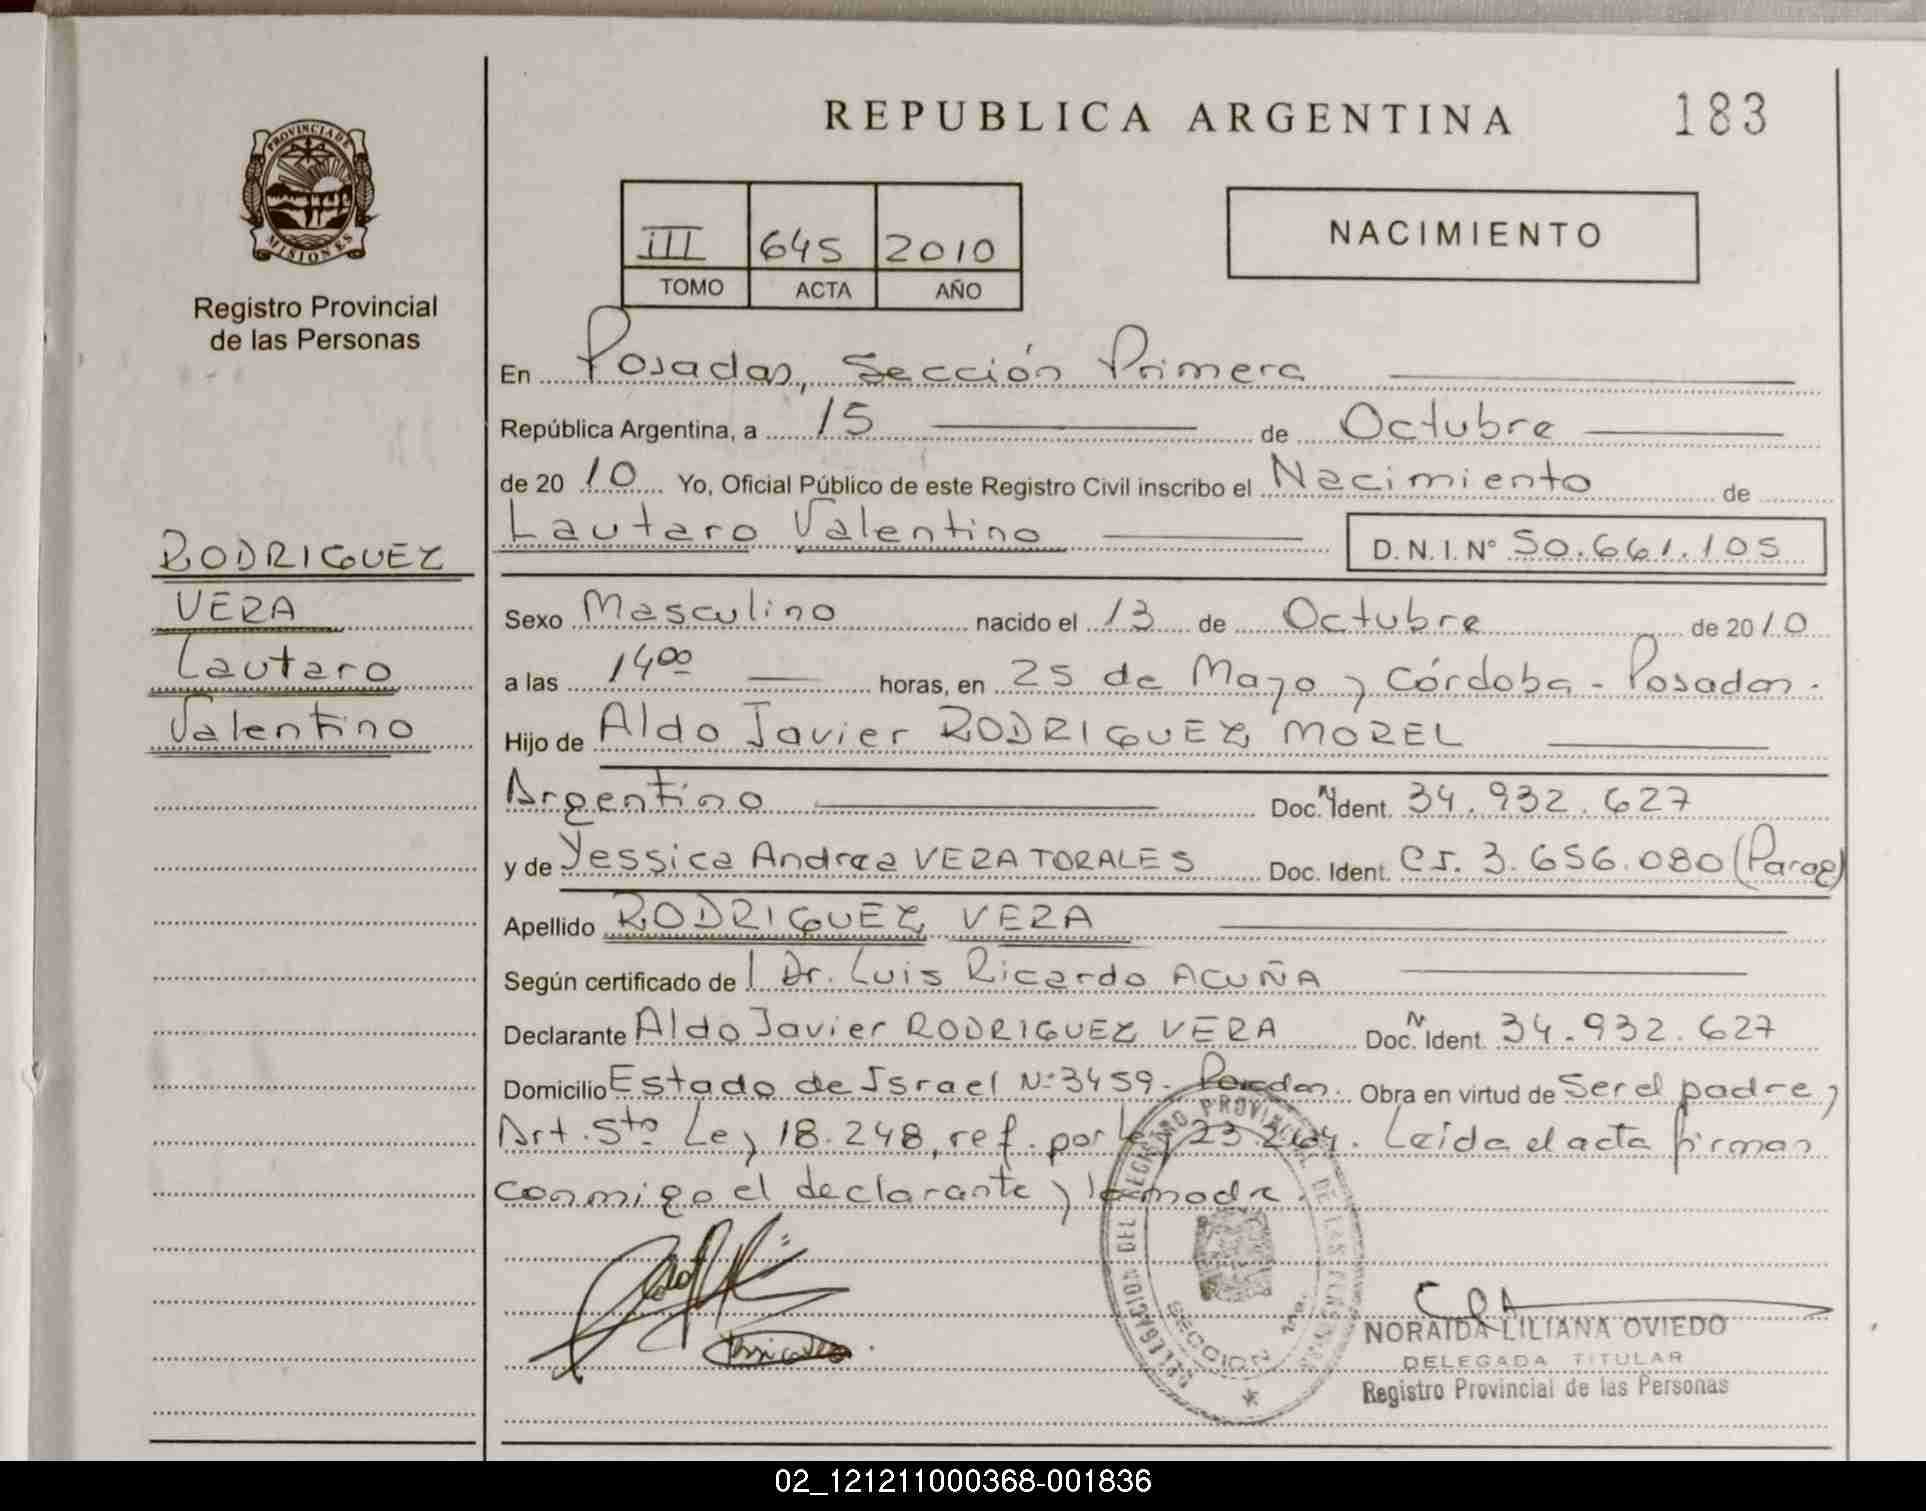 REPUBLICA ARGENTINA
183
PROVINCIA DE
MISIONES
Registro Provincial
de las Personas
III 645 2010
TOMO ACTA AÑO
NACIMIENTO
En Posadas, Sección Primera
República Argentina, a 15 de Octubre
de 20 10 Yo, Oficial Público de este Registro Civil inscribo el Nacimiento de
Lautaro Valentino D.N.I. Nº 50.661.105
RODRIGUEZ
VERA
Lautaro
Valentino
Sexo Masculino nacido el 13 de Octubre de 2010
a las 14⁰⁰ horas, en 25 de Mayo y Córdoba - Posadas.
Hijo de Aldo Javier RODRIGUEZ MOREL
Argentino Doc. N Ident. 34.932.627
y de Yessica Andrea VERA TORALES Doc. Ident. CI. 3.656.080 (Parag)
Apellido RODRIGUEZ VERA
Según certificado de l Dr. Luis Ricardo ACUÑA
Declarante Aldo Javier RODRIGUEZ VERA Doc. N Ident. 34.932.627
Domicilio Estado de Israel Nº 3459. Posadas. Obra en virtud de Ser el padre,
Art. 5to Ley 18.248, ref. por Ley 23.264. Leída el acta firman
conmigo el declarante y la madre.
DELEGACION DEL REGISTRO PROVINCIAL DE LAS PERSONAS
SECCION 1ra.
NORAIDA LILIANA OVIEDO
DELEGADA TITULAR
Registro Provincial de las Personas
02_121211000368-001836